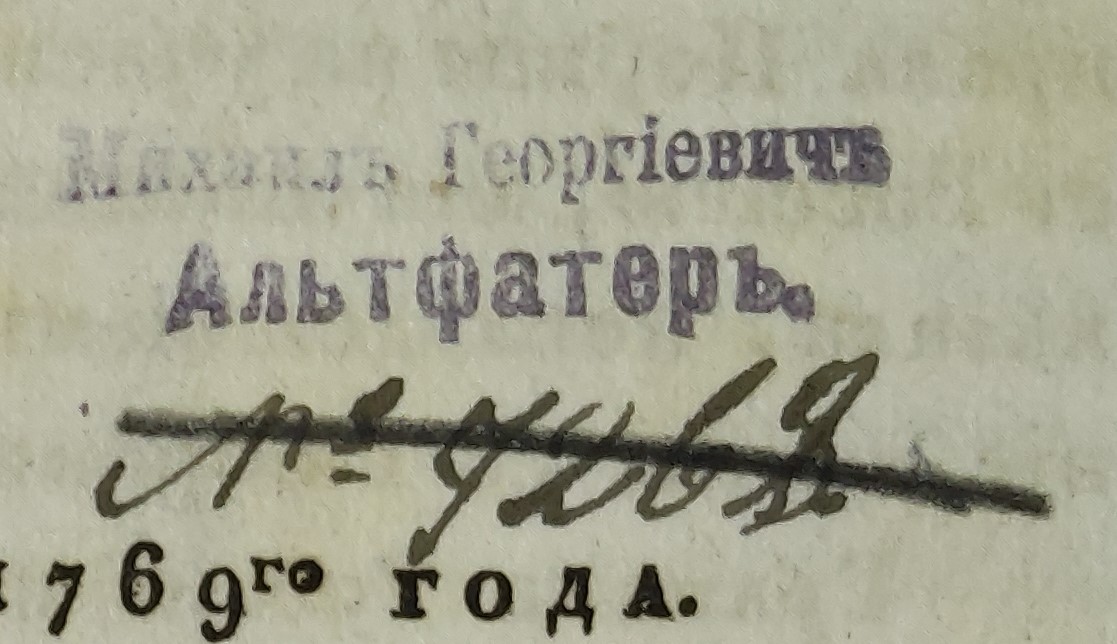 Михаилъ Георгіевичъ
Альтфатеръ.
№
769го года.